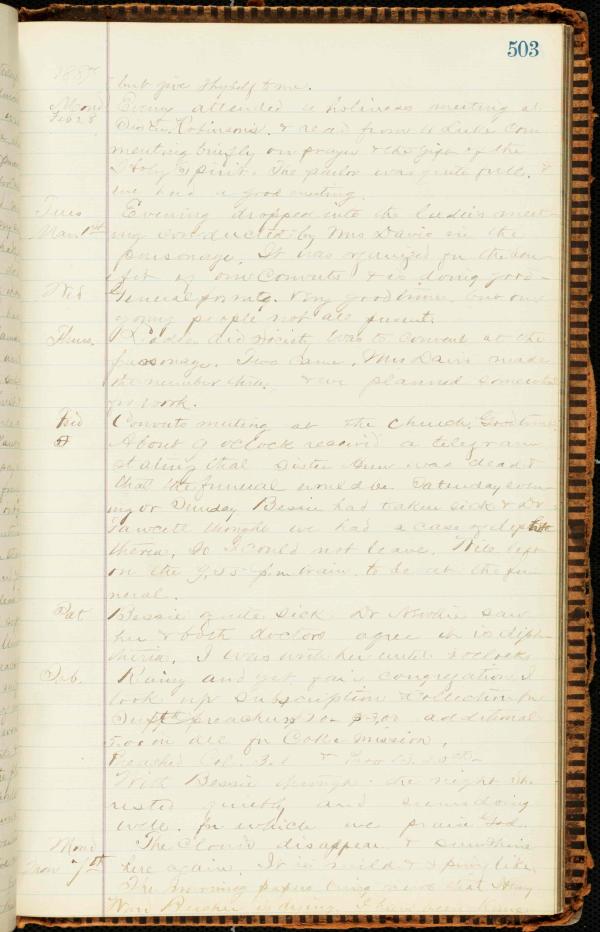 503
1887
but give Thyself to me.
Mond Evening attended a holiness meeting at
Feb 28 Sister Robinson's. & read from 11 Luke com
menting briefly on prayer & the gift of the
Holy Spirit. The parlor was quite full. &
we had a good meeting.
Tues Evening dropped into the ladies meet-
Mar. 1st ing conducted by Mrs Davis in the
parsonage. It was organized for the ben-
fit of our Converts & is doing good-
Wed General pr mtg. Very good time, but our
young people not all present.
Thurs. Riddle did resist. Was to convene at the
parsonage. Two came. Mrs Davis made
the number three, & we planned somewhat
for work.
Frid Converts meeting at the Church. Good time
About 9 oclock received a telegram
stating that Sister Ann was dead &
that the funeral would be Saturday even-
ing or Sunday Bessie had taken sick & Dr
Fawcett thought we had a case of diph
theria. So I could not leave. Wife left
on the 9,55 p.m train to be at the fu-
neral.
Sat Bessie quite sick. Dr saw
her & both doctors agree it is diph-
theria. I was with her until oclock
Sab. Rainy and yet fair congregation I
took up Subscription & Collection for
Supt preachers additional
5.00 in all for Coke Mission.
Preached Col. 3.1 &
With Bessie through the night She
rested quietly and seems doing
well. For which we praise God.
Mond The Clouds disappear & sunshine
Mar 7th here again. It is mild & Spring like.
The morning papers bring word that Henry
Ward Beecher is dying. I have